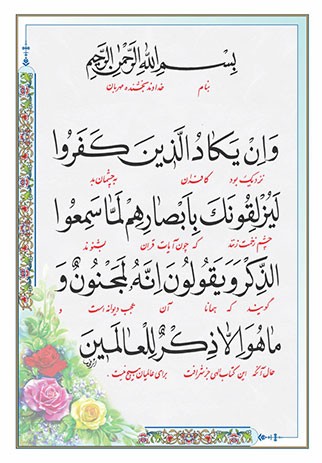 بِسْمِ اللهِ الرَّحْمٰنِ الرَّحِيمِ
بنام خداوند بخشنده مهربان
وَاِنْ يَكَادُ الَّذينَ كَفَرُوا
نزدیک بود کافران به چشمان بد
لَيُزْلِقُونَكَ بِاَبْصَارِهِمْ لَمَّا سَمِعُوا
چشم زخمت زنند که چون آیات قرآن بشنوند
الذِّكْرَ وَيَقُولُونَ اِنَّهُ لَمَجْنُونٌ وَ
گویند که همانا آن عجب دیوانه است و
مَا هُوَ اِلَّا ذِكْرٌ لِلْعَالَمينَ
حال آنکه این کتاب الهی جز شرافت برای عالمیان هیچ نیست